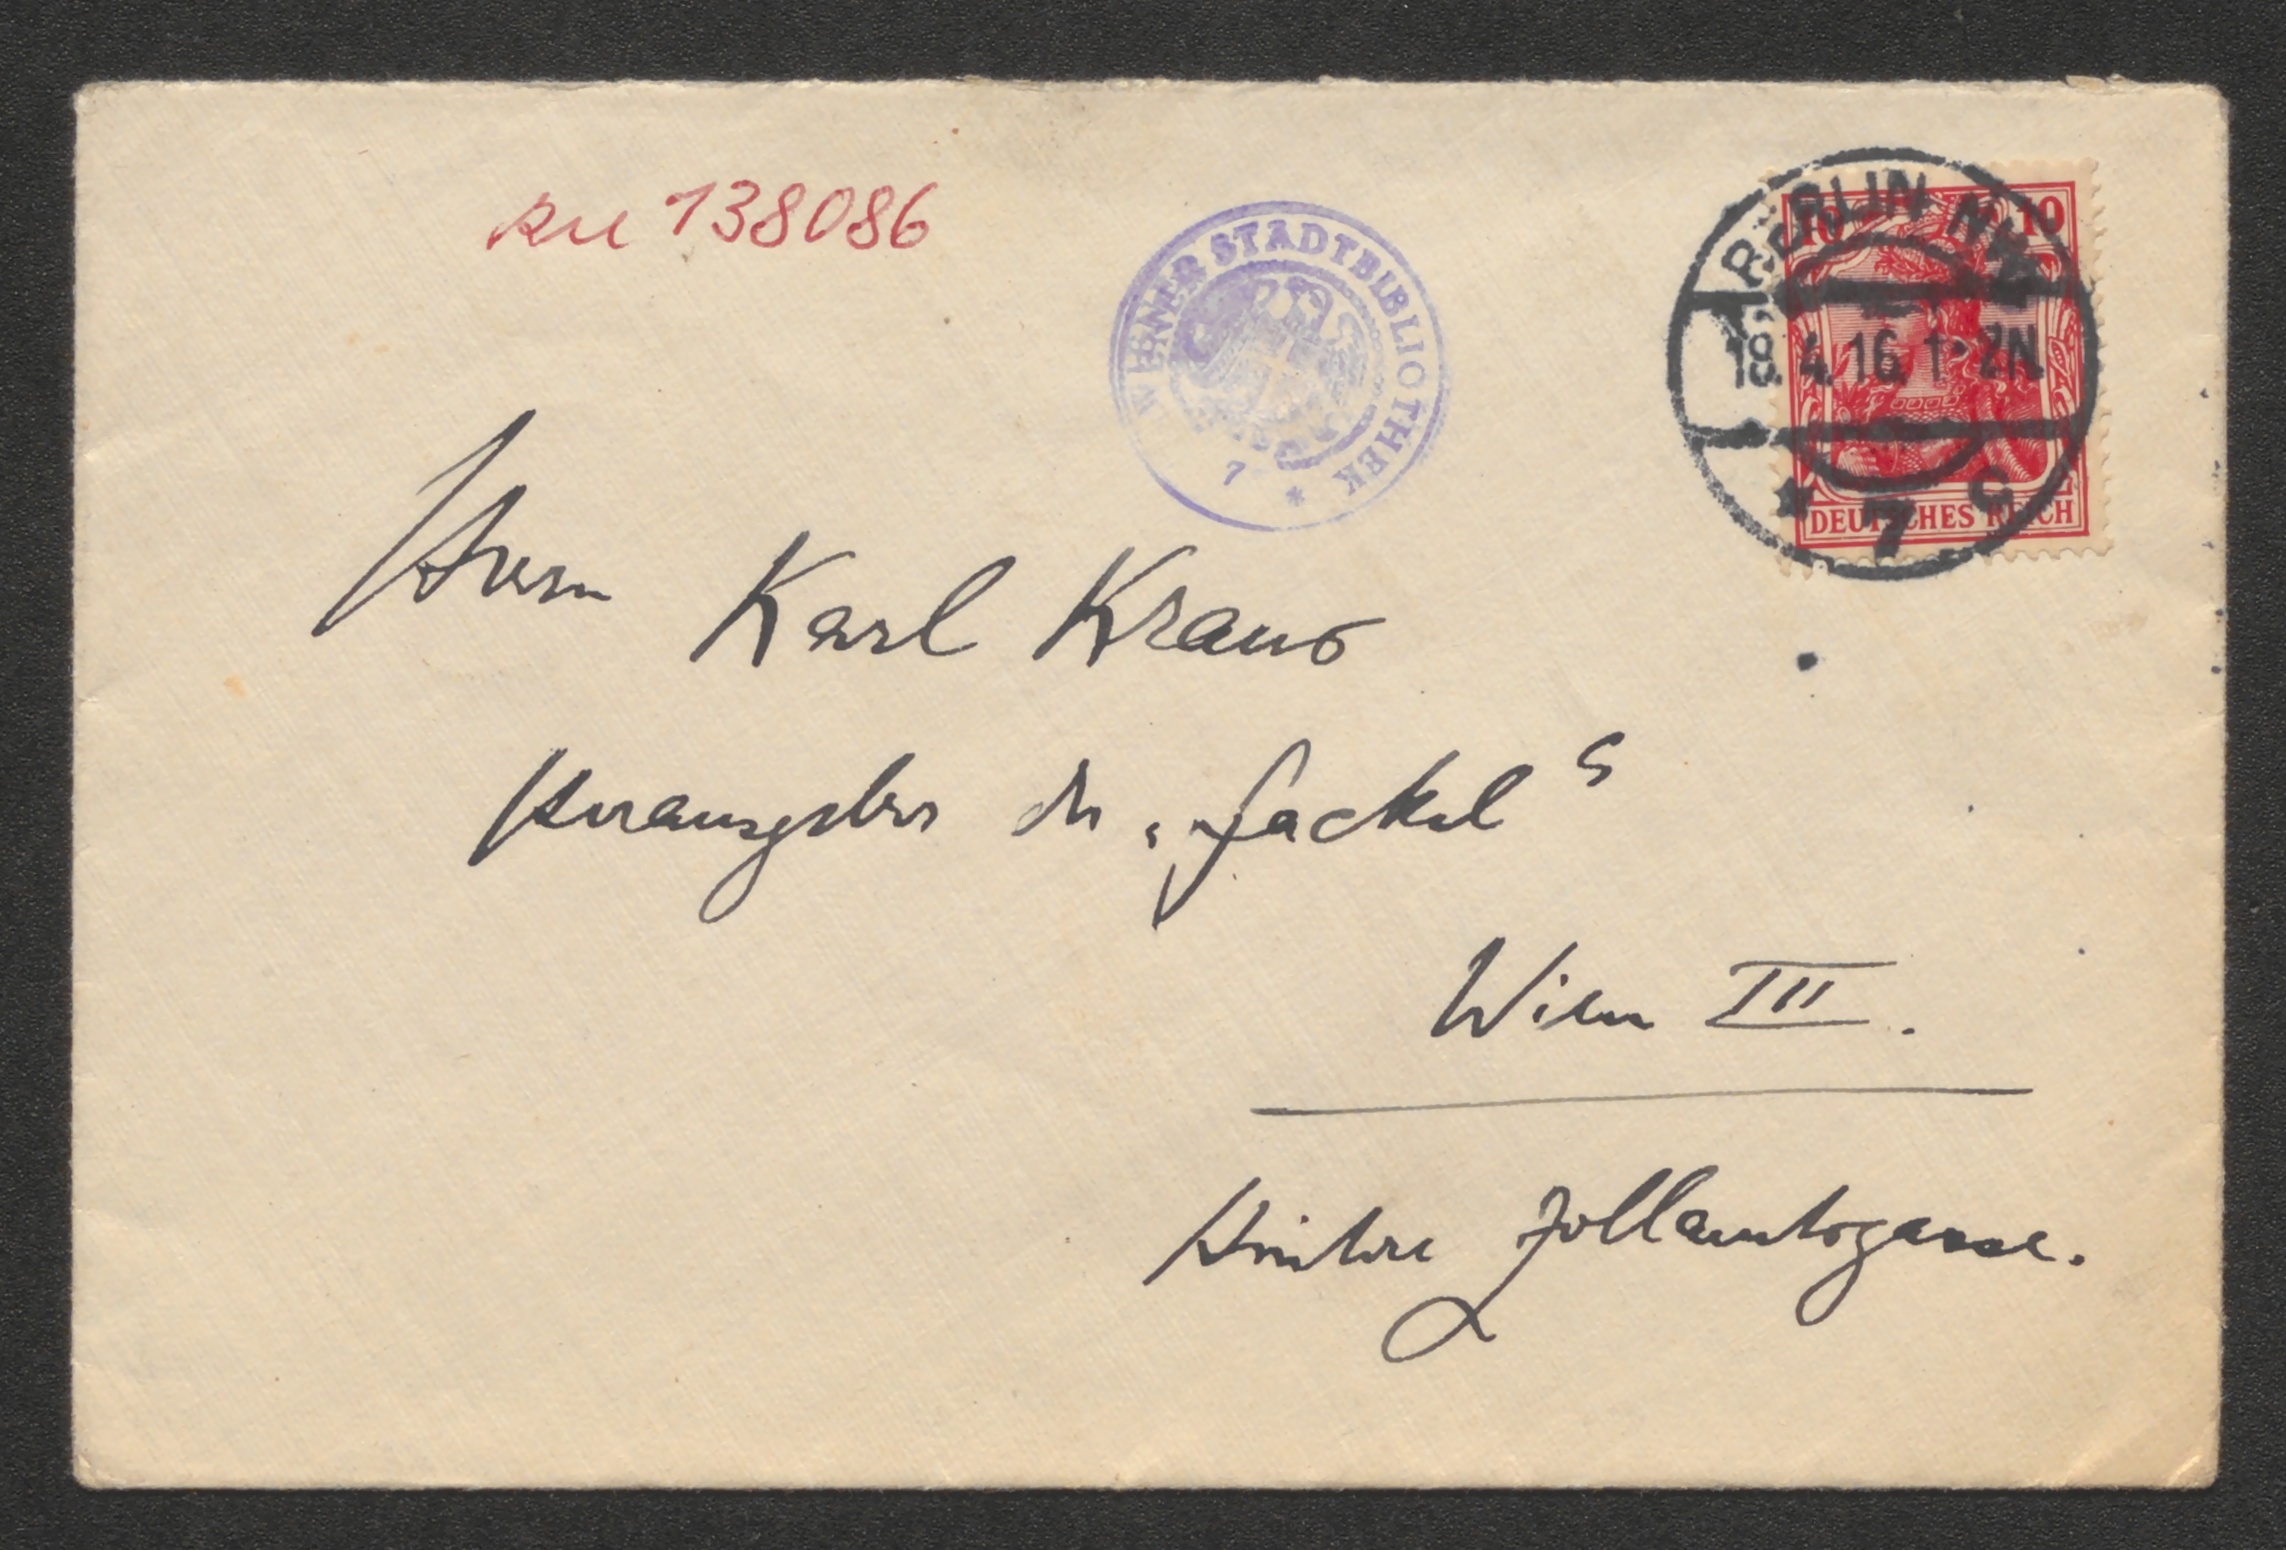 KN 138086
WIENER STADTBIBLIOTHEK
7 *
BERLIN NW
10 10
18.4.16. 1-2N.
* 7 c
DEUTSCHES REICH
Herrn Karl Kraus
Herausgeber der „Fackel“
Wien III.
Hintere Zollamtsgasse.